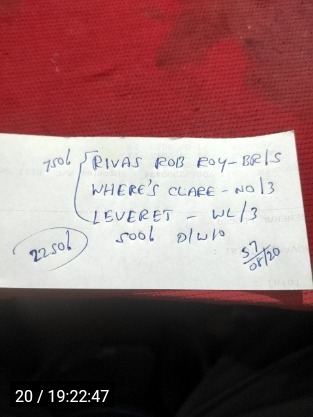 750b RIVAS ROB ROY - BR/S
WHERE'S CLARE - NO/3
LEVERET - WL/3
500b D/W/O
2250b
57
08/20
20 / 19:22:47